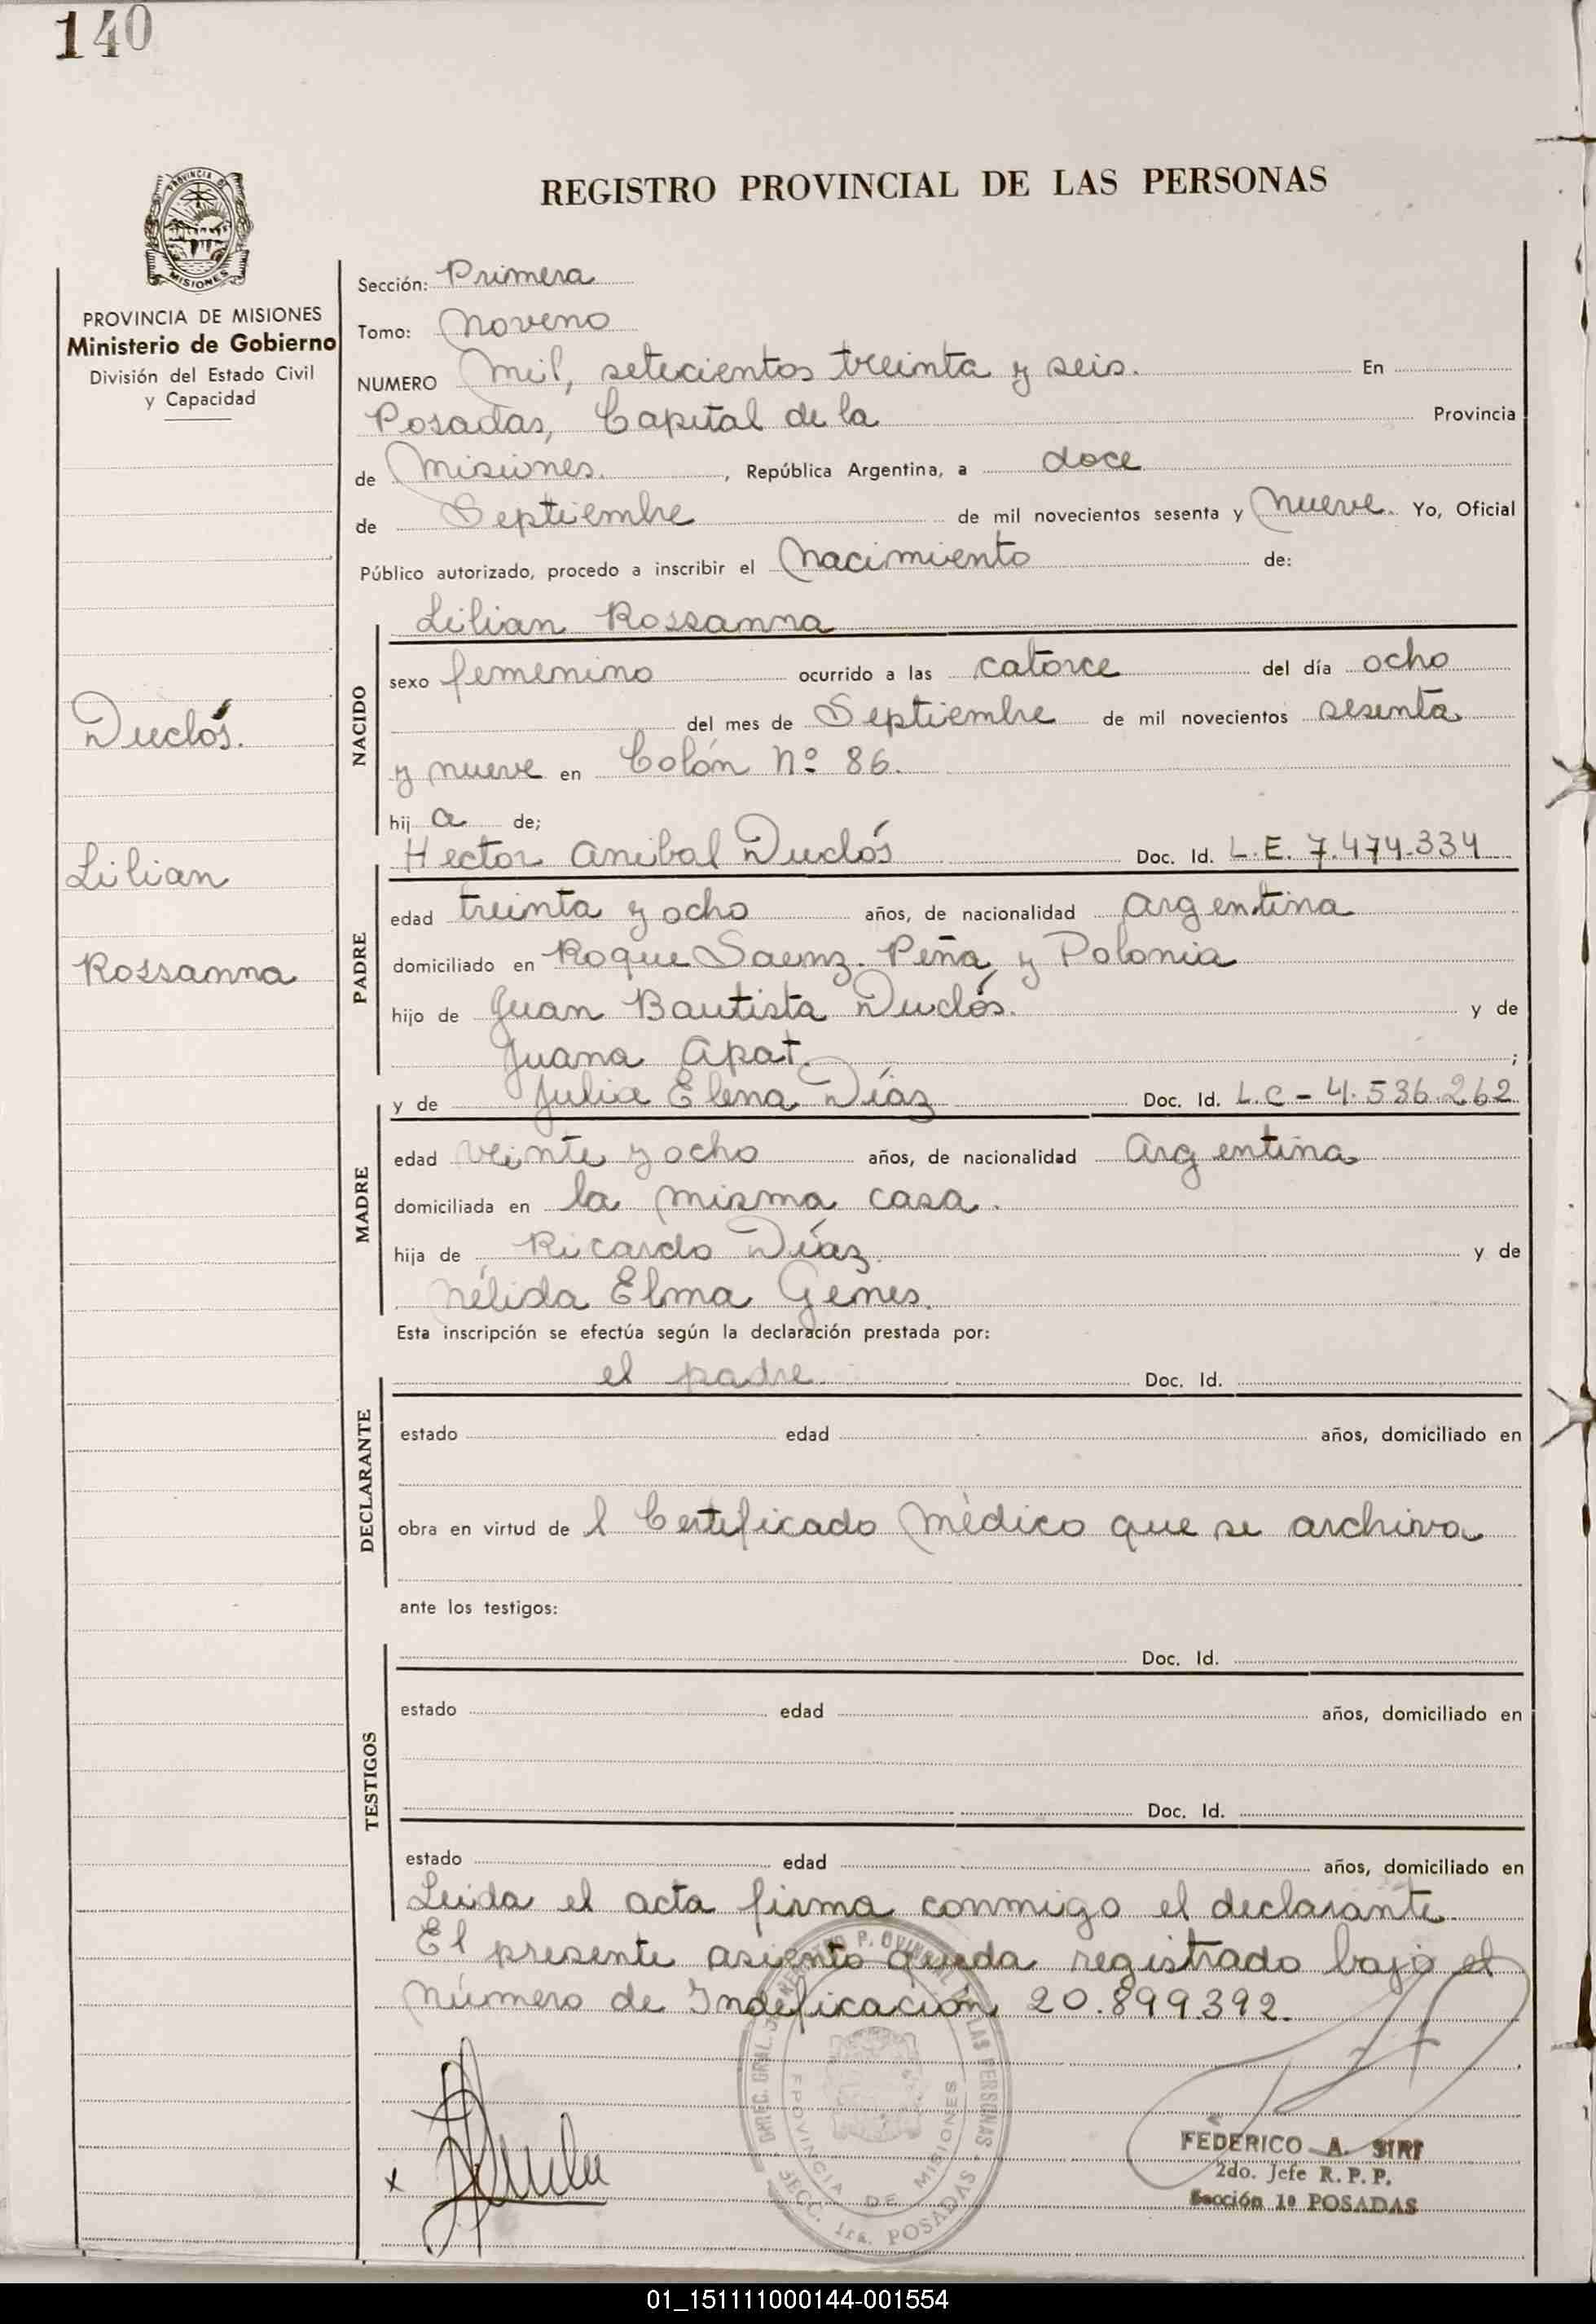 140
REGISTRO PROVINCIAL DE LAS PERSONAS
PROVINCIA DE MISIONES
Ministerio de Gobierno
División del Estado Civil
y Capacidad
Sección: Primera
Tomo: Noveno
NUMERO Mil, setecientos treinta y seis. En
Posadas, Capital de la Provincia
de Misiones. , República Argentina, a doce
de Septiembre de mil novecientos sesenta y Nueve. Yo, Oficial
Público autorizado, procedo a inscribir el Nacimiento de:
Lilian Rossanna
NACIDO
sexo femenino ocurrido a las catorce del día ocho
del mes de Septiembre de mil novecientos sesenta
y nueve en Colón Nº 86.
hij a de;
Duclós.
Lilian
Rossanna
Hector Anibal Duclós Doc. Id. L.E. 7.474.334
PADRE
edad treinta y ocho años, de nacionalidad Argentina
domiciliado en Roque Saenz Peña y Polonia
hijo de Juan Bautista Duclós. y de
Juana Apat. ;
y de Julia Elena Díaz Doc. Id. L.C - 4.536.262
MADRE
edad veinte y ocho años, de nacionalidad Argentina
domiciliada en la misma casa.
hija de Ricardo Díaz. y de
Nélida Elma Genes.
Esta inscripción se efectúa según la declaración prestada por:
el padre Doc. Id.
DECLARANTE
estado edad años, domiciliado en
obra en virtud de l Certificado Médico que se archiva
ante los testigos:
Doc. Id.
TESTIGOS
estado edad años, domiciliado en
Doc. Id.
estado edad años, domiciliado en
Leida el acta firma conmigo el declarante
El presente asiento queda registrado bajo el
Número de Indeficación 20.899.392.
DIREC. GRAL. LAS PERSONAS
PROVINCIA DE MISIONES
SECC. 1ra. POSADAS
x
FEDERICO A. SIRI
2do. Jefe R. P. P.
Sección 1ª POSADAS
01_151111000144-001554